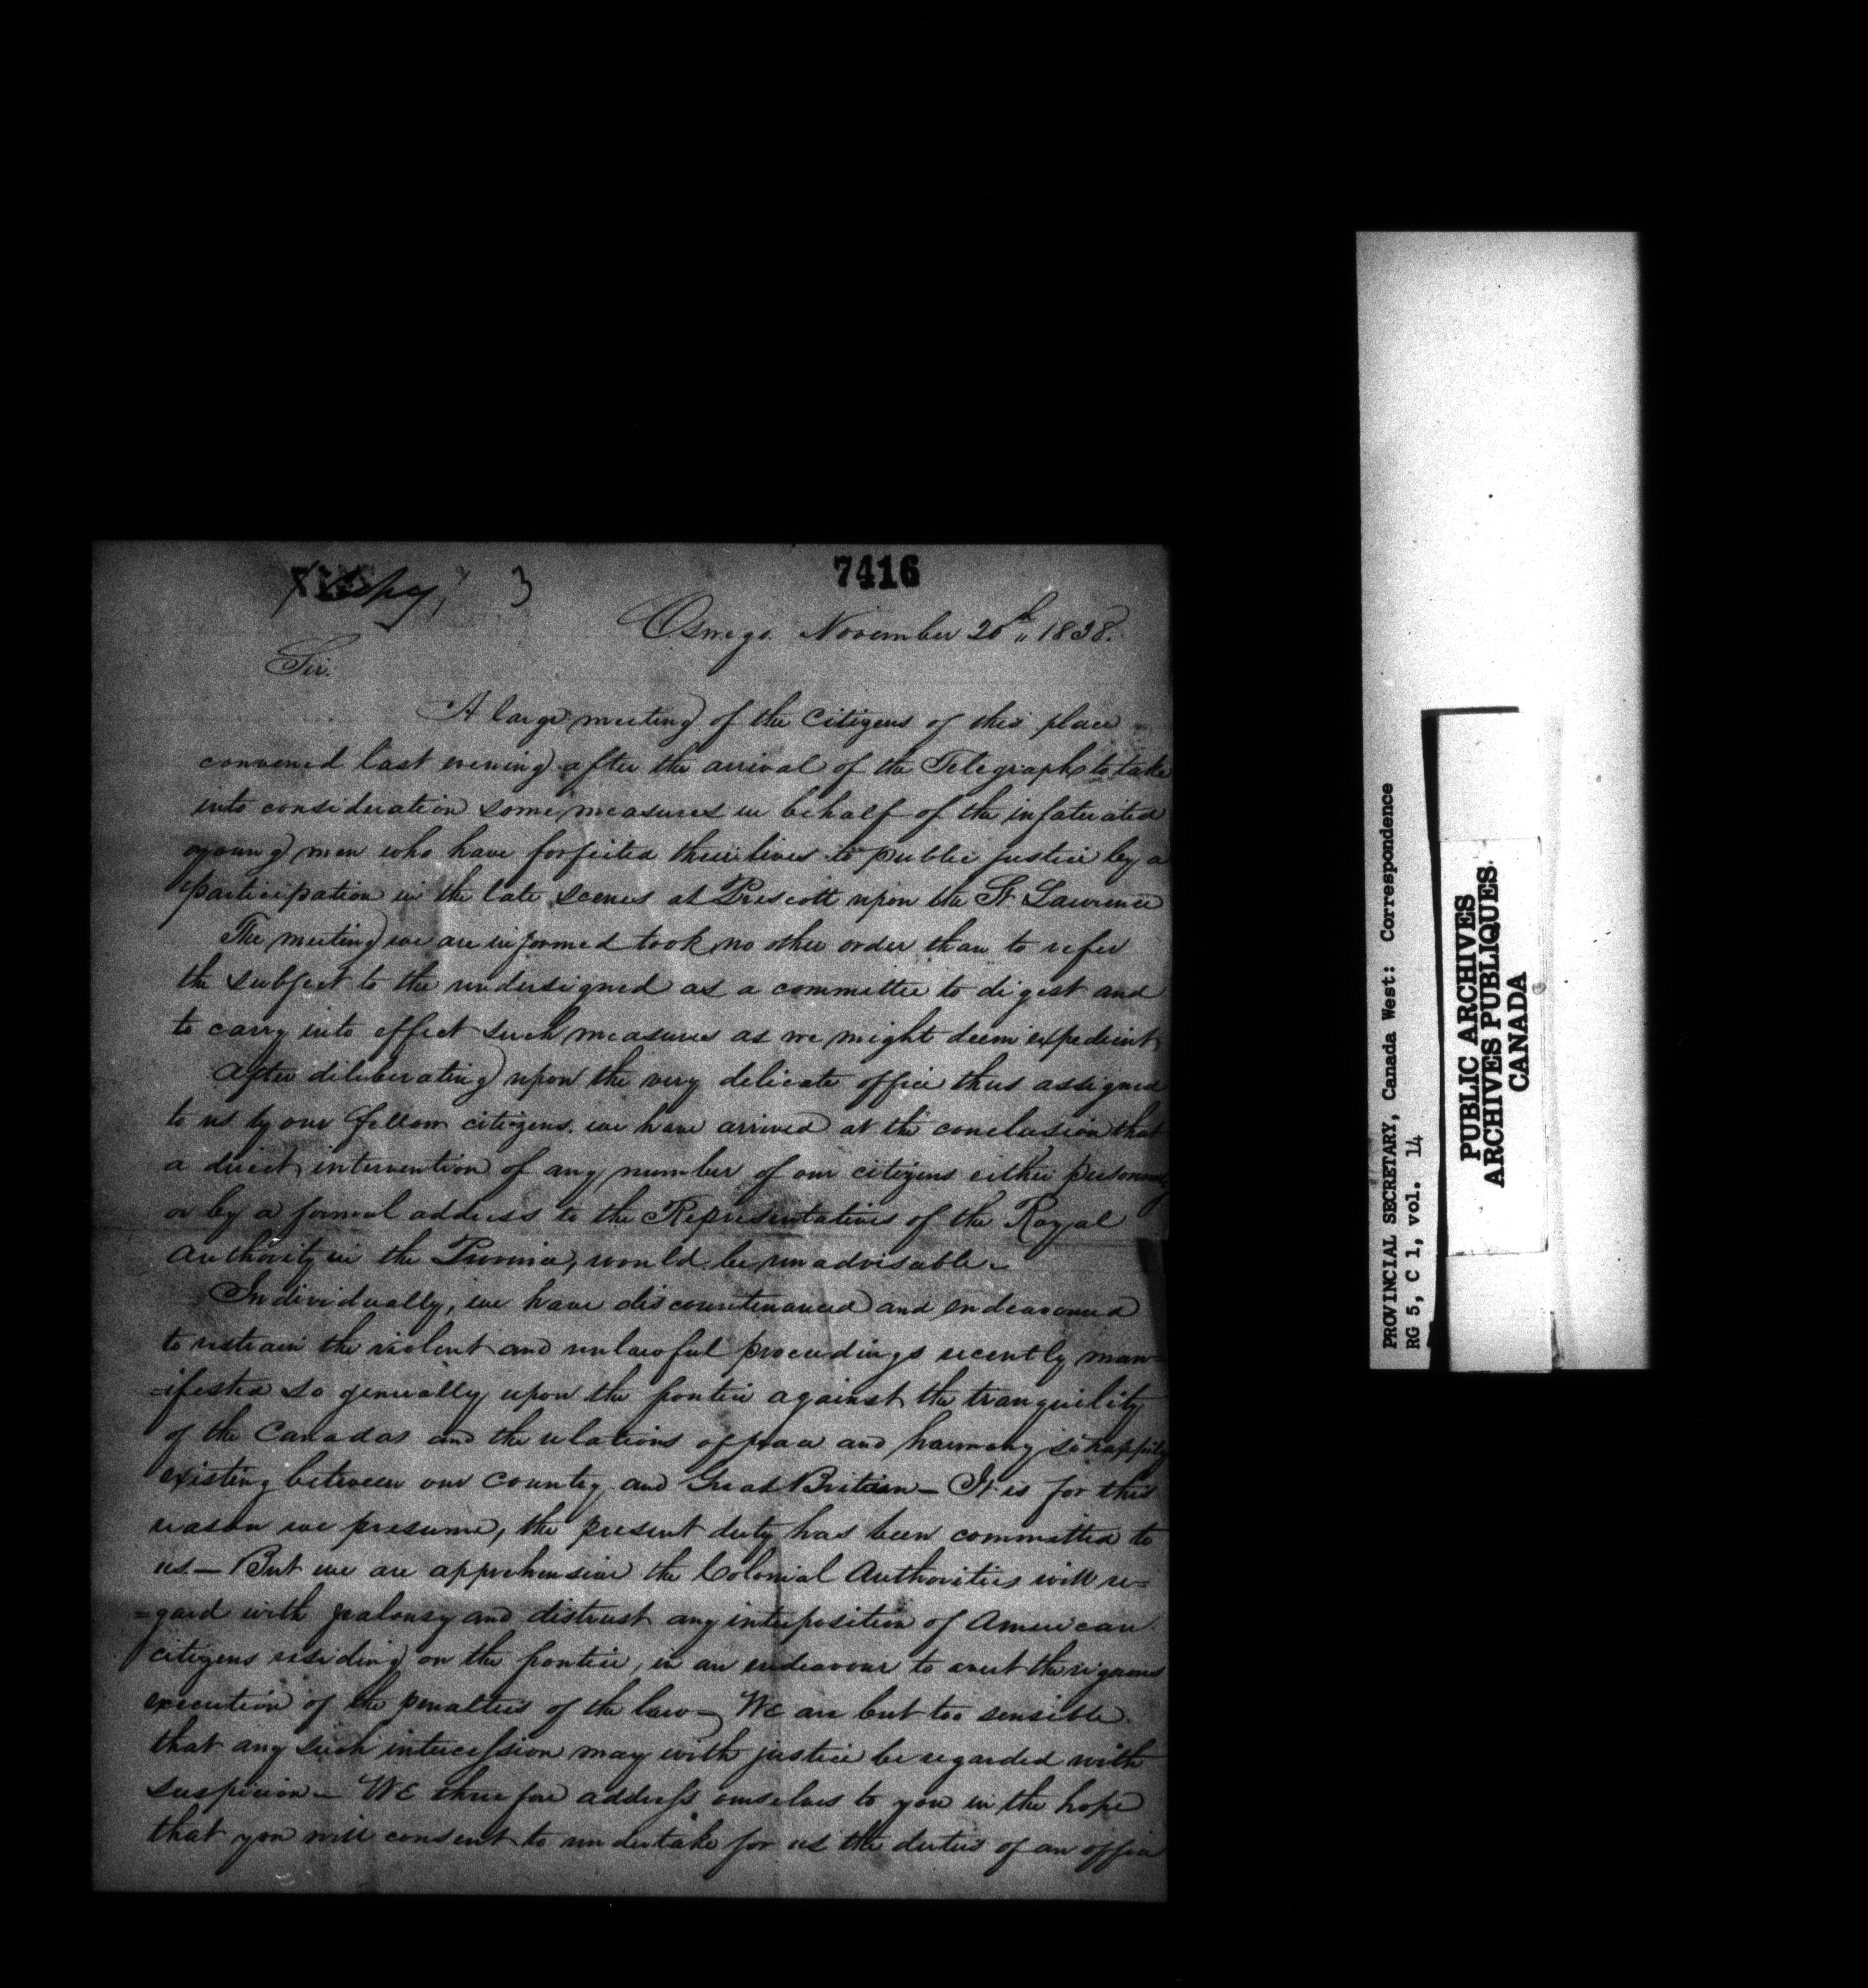 Copy, 3
7416
Oswego. November 20th 1838.
Sir.
A large meeting of the Citizens of this place
convened last evening after the arrival of the Telegraph to take
into consideration some measures in behalf of the infatuated
young men who have forfeited their lives to public justice by a
participation in the late scenes at Prescott upon the St. Lawrence
The meeting we are informed took no other order than to refer
the subject to the undersigned as a committee to digest and
to carry into effect such measures as we might deem expedient
After deliberating upon the very delicate office thus assigned
to us by our fellow citizens. we have arrived at the conclusion that
a direct intervention of any number of our citizens either personally
or by a formal address to the Representatives of the Royal
Authority in the Province, would be unadvisable—
Individually, we have discountenanced and endeavoured
to restrain the violent and unlawful proceedings recently man=
=ifested so generally upon the frontier against the tranquility
of the Canadas and the relations of peace and harmony so happily
existing between our Country and Great Britain— It is for this
reason we presume, the present duty has been committed to
us— But we are apprehensive the Colonial Authorities will re=
=gard with jealousy and distrust any interposition of American
citizens residing on the frontier, in an endeavour to avert the rigorous
execution of the penalties of the law— We are but too sensible
that any such intercession may with justice be regarded with
suspicion— We therefore address ourselves to you in the hope
that you will consent to undertake for us the duties of an office
PROVINCIAL SECRETARY, Canada West: Correspondence
RG 5, C 1, vol. 14
PUBLIC ARCHIVES
ARCHIVES PUBLIQUES
CANADA